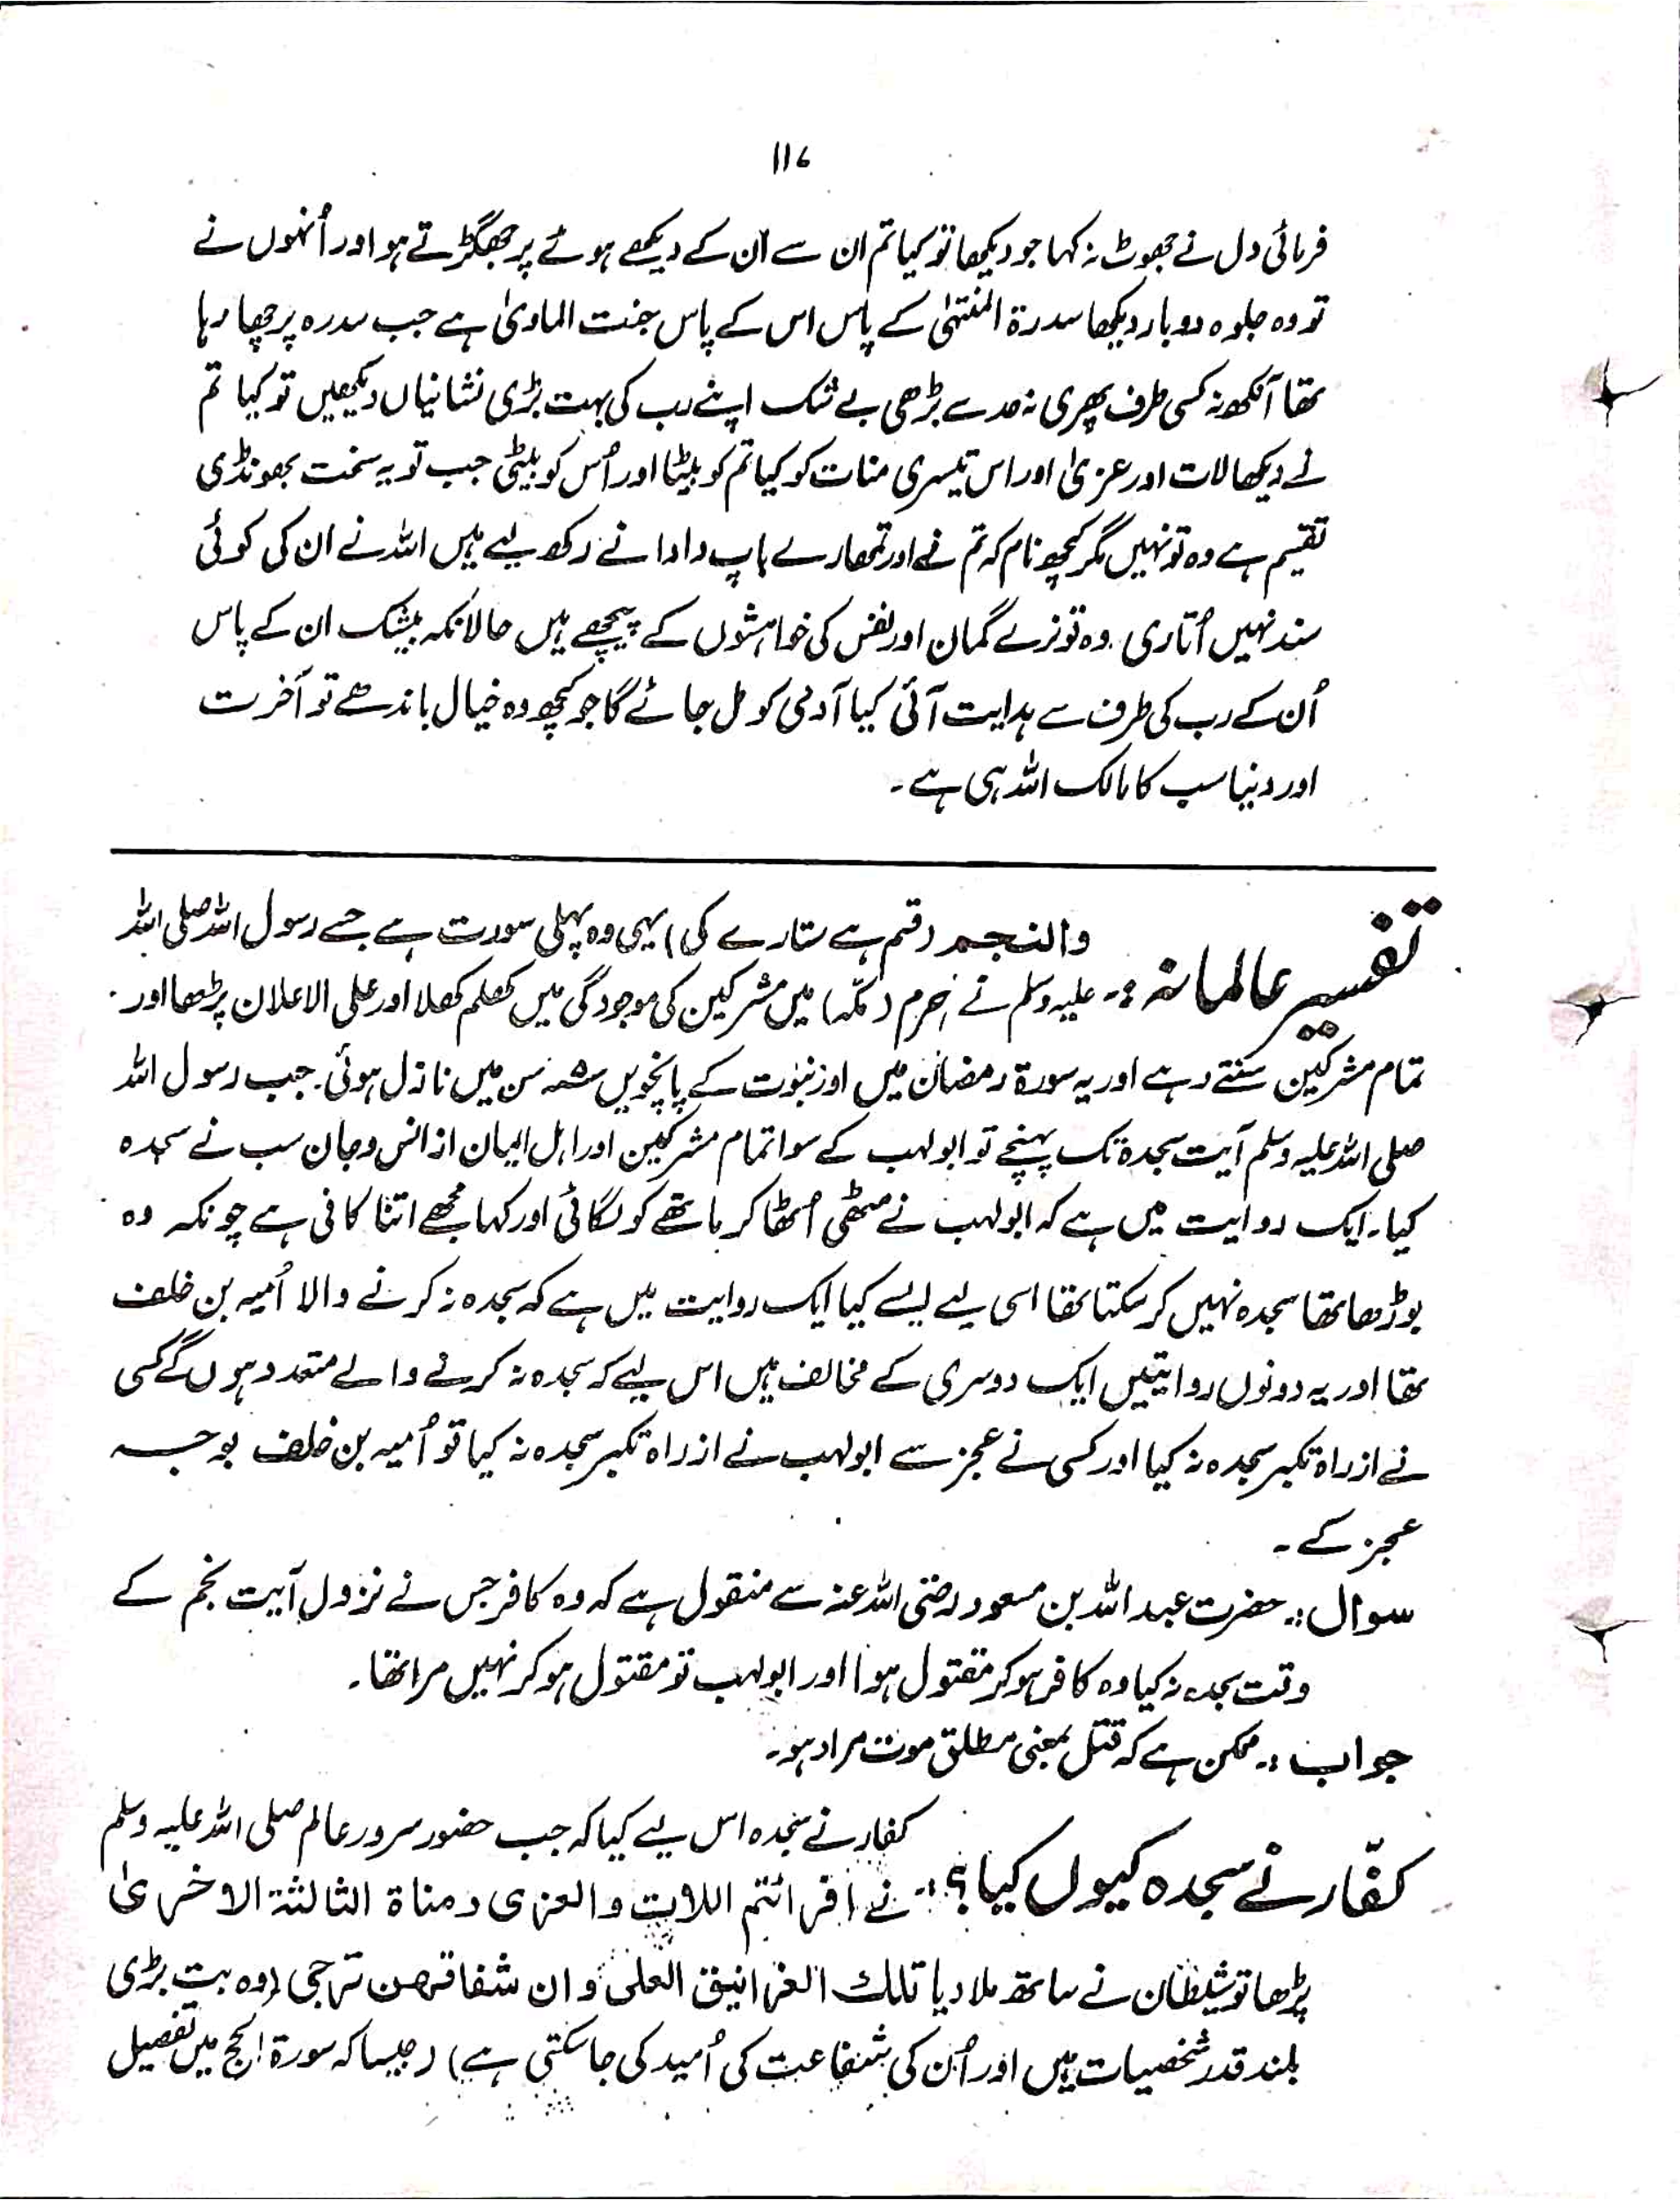 ۱۱۶
فرمائی دل نے جھوٹ نہ کہا جو دیکھا تو کیا تم ان سے ان کے دیکھے ہوئے پر جھگڑتے ہو اور اُنہوں نے
تو وہ جلوہ دوبار دیکھا سدرۃ المنتہٰی کے پاس اس کے پاس جنت الماویٰ ہے جب سدرہ پر چھا رہا
تھا آنکھ نہ کسی طرف پھری نہ حد سے بڑھی بے شک اپنے رب کی بہت بڑی نشانیاں دیکھیں تو کیا تم
نے دیکھا لات اور عزیٰ اور اس تیسری منات کو کیا تم کو بیٹا اور اُس کو بیٹی جب تو یہ سخت بھونڈی
تقیسم ہے وہ تو نہیں مگر کچھ نام کہ تم نے اور تمھارے باپ دادا نے رکھ لیے ہیں اللہ نے ان کی کوئی
سند نہیں اُتاری۔ وہ تو نرے گمان اور نفس کی خواہشوں کے پیچھے ہیں حالانکہ بیشک ان کے پاس
اُن کے رب کی طرف سے ہدایت آئی کیا آدمی کو مل جائے گا جو کچھ وہ خیال باندھے تو آخرت
اور دنیا سب کا مالک اللہ ہی ہے۔
والنجم (قسم ہے ستارے کی) یہی وہ پہلی سورت ہے جسے رسول اللہ صلی اللہ
تفسیر عالمانہ :۔ علیہ وسلم نے حرم (مکہ) میں مشرکین کی موجودگی میں کھلم کھلا اور علی الاعلان پڑھا اور
تمام مشرکین سنتے رہے اور یہ سورۃ رمضان میں اور نبوت کے پانچویں سن میں نازل ہوئی۔ جب رسول اللہ
صلی اللہ علیہ وسلم آیت سجدۃ تک پہنچے تو ابولہب کے سوا تمام مشرکین اور اہل ایمان از انس و جان سب نے سجدہ
کیا۔ ایک روایت میں ہے کہ ابولہب نے مٹھی اُٹھا کر ماتھے کو لگائی اور کہا مجھے اتنا کافی ہے چونکہ وہ
بوڑھا تھا سجدہ نہیں کر سکتا تھا اسی لیے ایسے کیا ایک روایت میں ہے کہ سجدہ نہ کرنے والا اُمیہ بن خلف
تھا اور یہ دونوں روایتیں ایک دوسری کے مخالف ہیں اس لیے کہ سجدہ نہ کرنے والے متعدد ہوں گے کسی
نے از راہ تکبر سجدہ نہ کیا اور کسی نے عجز سے ابولہب نے از راہ تکبر سجدہ نہ کیا تو اُمیہ بن خلف بوجہ
عجز کے۔
سوال :۔ حضرت عبداللہ بن مسعود رضی اللہ عنہ سے منقول ہے کہ وہ کافر جس نے نزول آیت نجم کے
وقت سجدہ نہ کیا وہ کافر ہو کر مقتول ہوا اور ابولہب تو مقتول ہو کر نہیں مرا تھا۔
جواب :۔ ممکن ہے کہ قتل بمعنی مطلق موت مراد ہو۔
کفار نے سجدہ اس لیے کیا کہ جب حضور سرور عالم صلی اللہ علیہ وسلم
کفّار نے سجدہ کیوں کیا؟:۔ نے افرائتم اللات والعزی ومناۃ الثالثۃ الاخریٰ
پڑھا تو شیطان نے ساتھ ملا دیا تلك الغرانیق العلی و ان شفاقتھن ترجی (وہ بت بڑی
بلند قدر شخصیات ہیں اور اُن کی شفاعت کی اُمید کی جا سکتی ہے) (جیسا کہ سورۃ الحج میں تفصیل